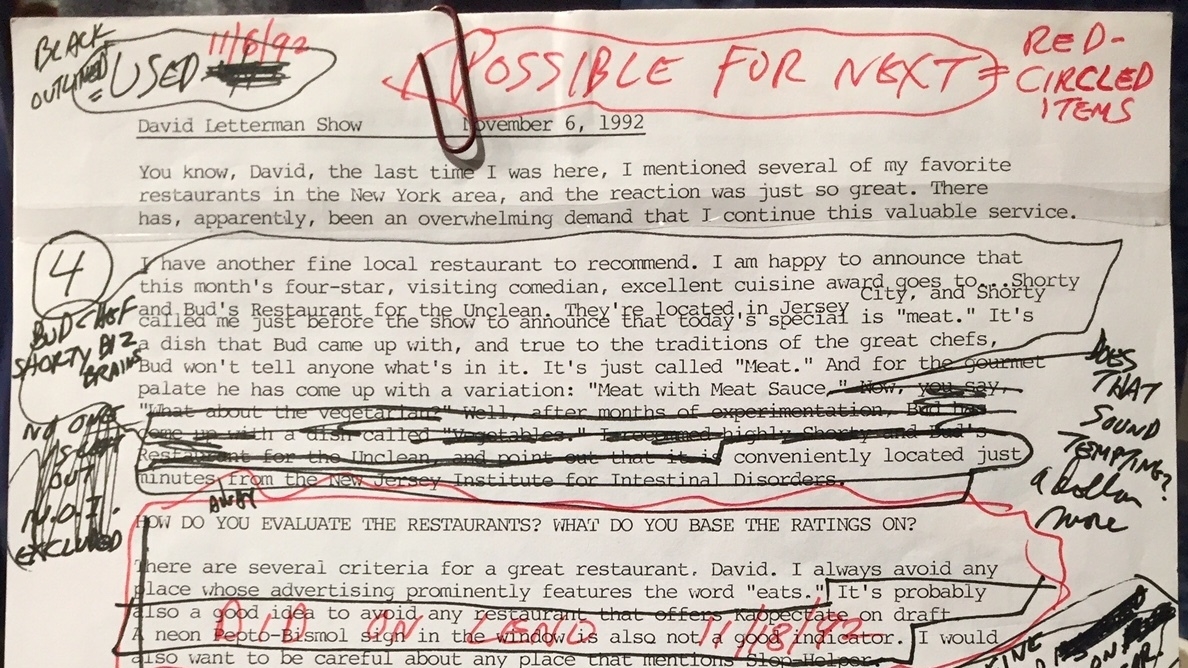 BLACK
OUTLINED
=
USED 11/6/92
POSSIBLE FOR NEXT = RED-
CIRCLED
ITEMS
David Letterman Show November 6, 1992
You know, David, the last time I was here, I mentioned several of my favorite
restaurants in the New York area, and the reaction was just so great. There
has, apparently, been an overwhelming demand that I continue this valuable service.
4
I have another fine local restaurant to recommend. I am happy to announce that
this month's four-star, visiting comedian, excellent cuisine award goes to...Shorty
and Bud's Restaurant for the Unclean. They're located in Jersey City, and Shorty
called me just before the show to announce that today's special is "meat." It's
a dish that Bud came up with, and true to the traditions of the great chefs,
Bud won't tell anyone what's in it. It's just called "Meat." And for the gourmet
palate he has come up with a variation: "Meat with Meat Sauce." Now, you say,
"What about the vegetarian?" Well, after months of experimentation, Bud has
come up with a dish called "Vegetables." I recommend highly Shorty and Bud's
Restaurant for the Unclean, and point out that it is conveniently located just
minutes from the New Jersey Institute for Intestinal Disorders.
BUD-CHEF
SHORTY BIZ
BRAINS
NO ONE
IS LEFT
OUT
N.O.I.
EXCLUDED
DOES
THAT
SOUND
TEMPTING?
a dollar
more
AWAY
HOW DO YOU EVALUATE THE RESTAURANTS? WHAT DO YOU BASE THE RATINGS ON?
There are several criteria for a great restaurant, David. I always avoid any
place whose advertising prominently features the word "eats." It's probably
also a good idea to avoid any restaurant that offers Kaopectate on draft
A neon Pepto-Bismol sign in the window is also not a good indicator. I would
also want to be careful about any place that mentions Slop-Helper.
DID ON LENO 11/18/92